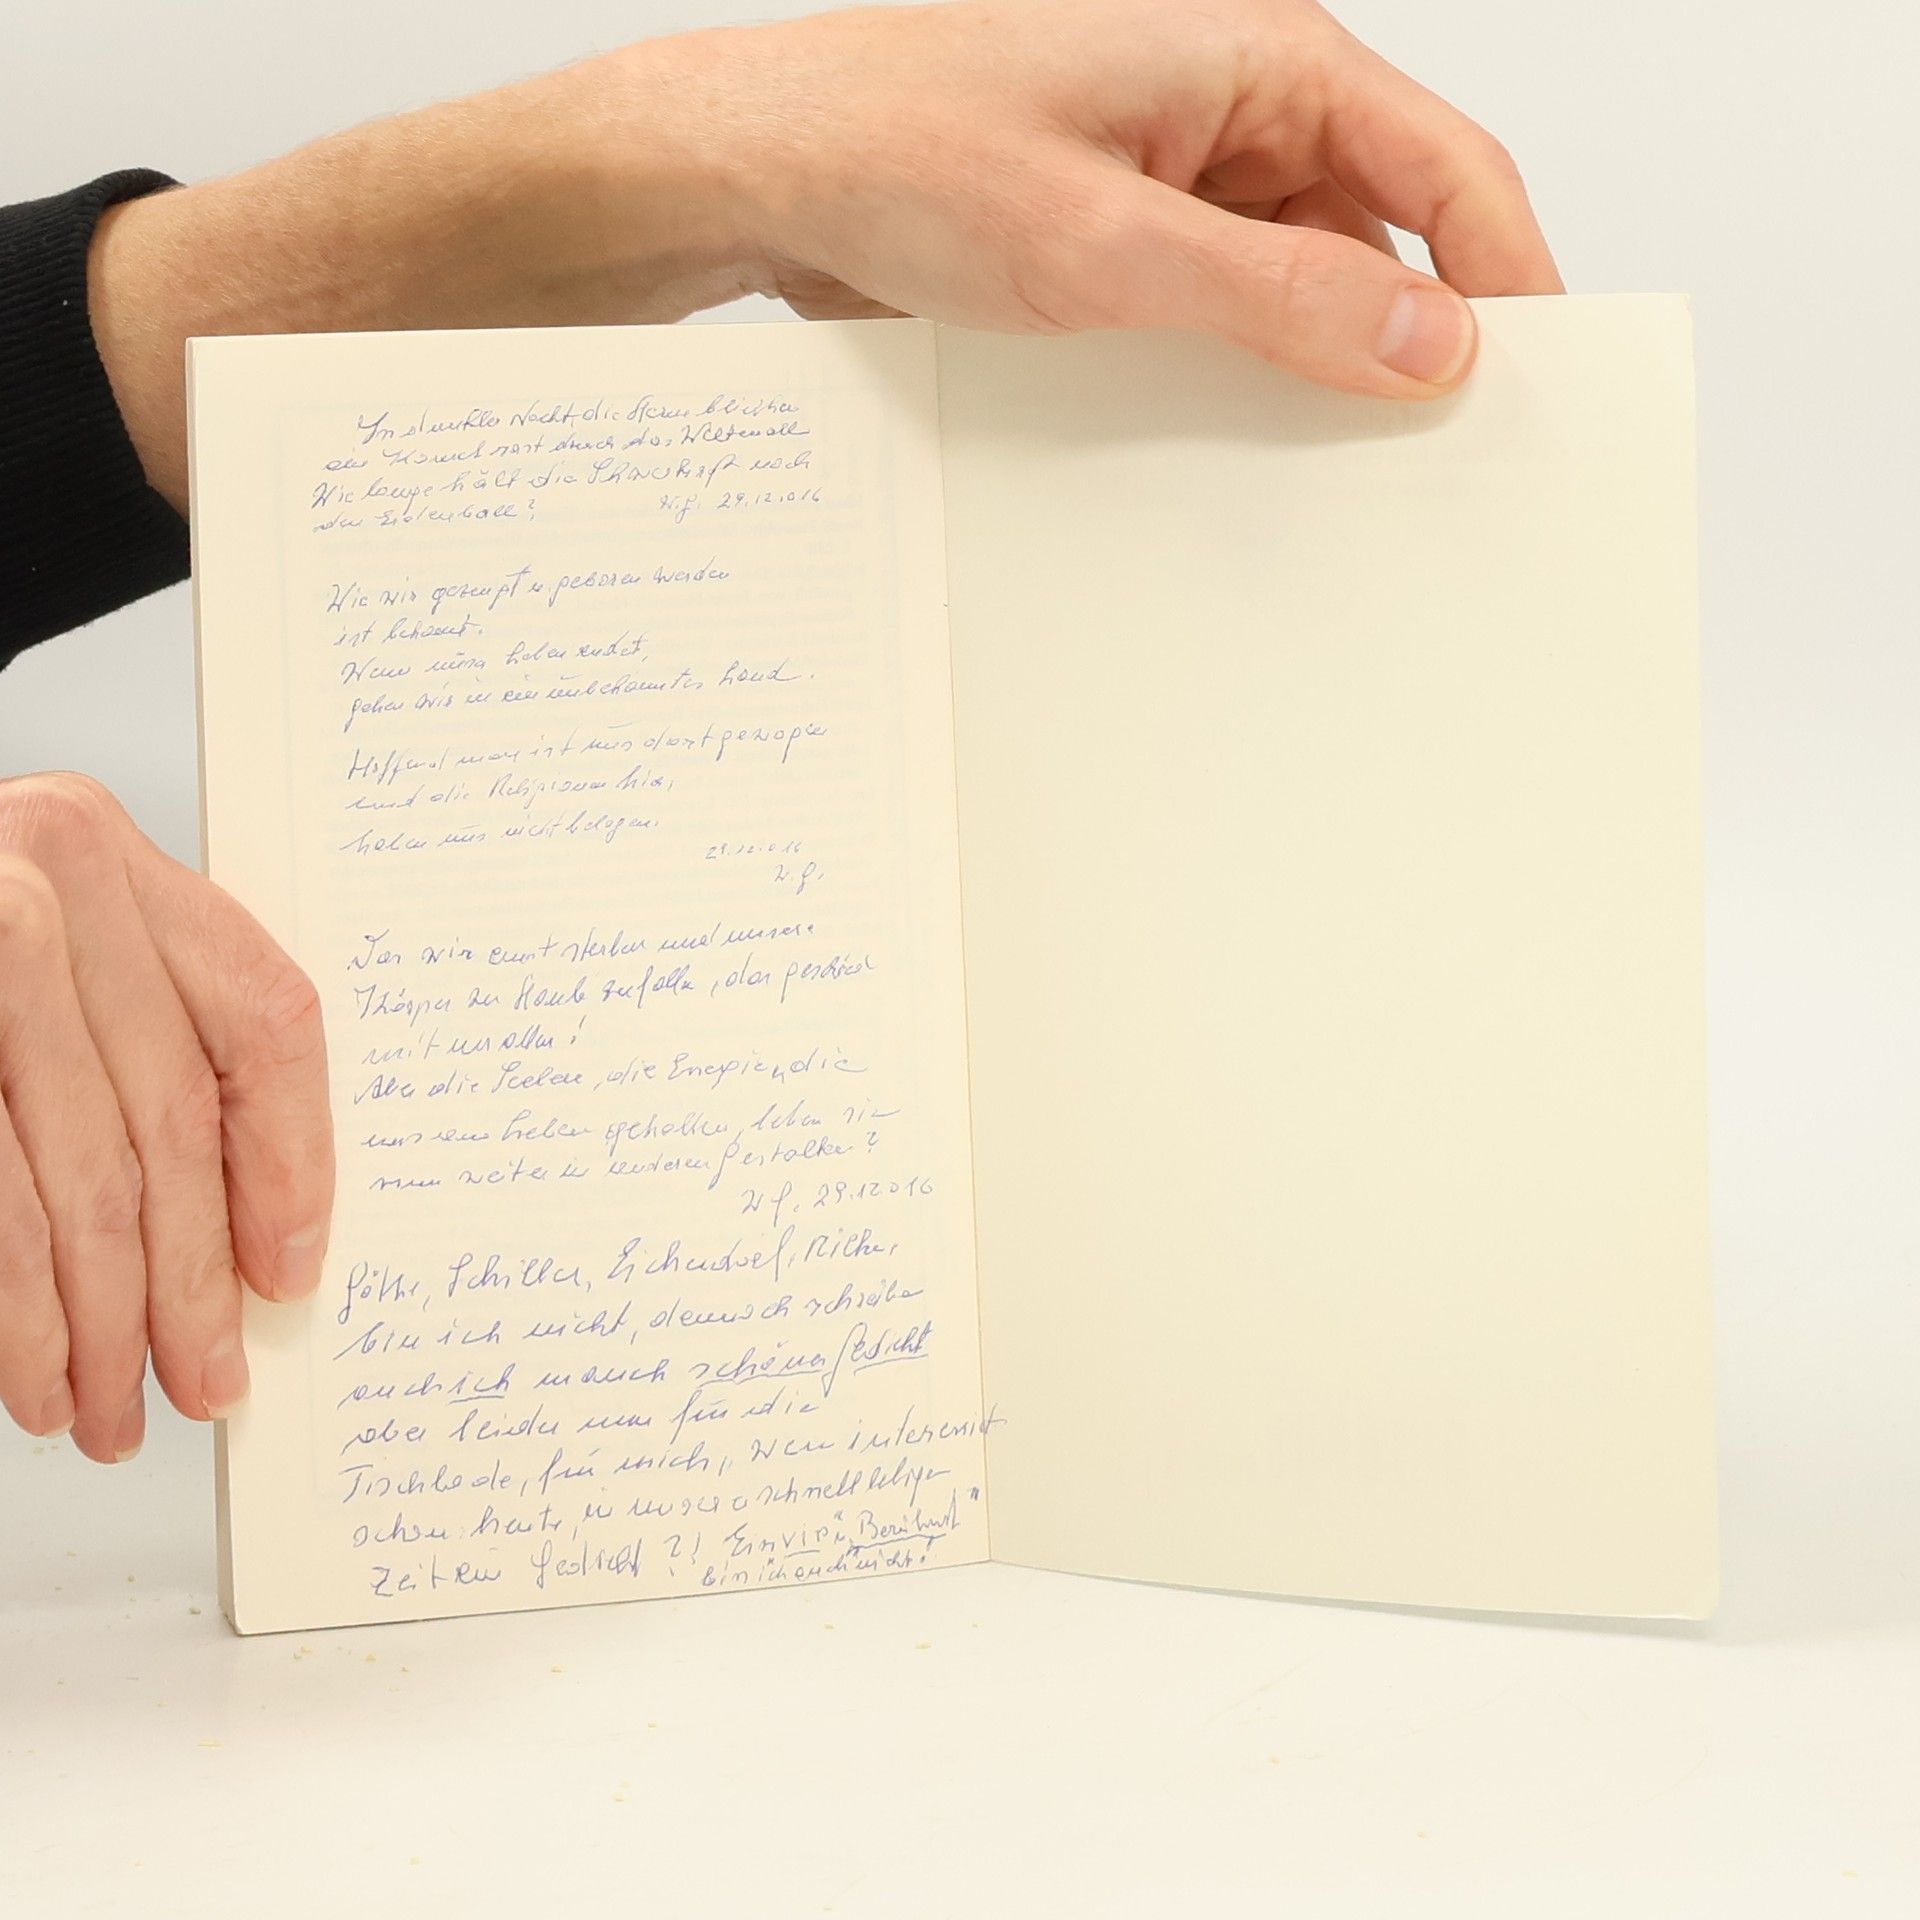 In dunkler Nacht, die Sterne bleichen
ein Komet rast durch das Weltenall
Wie lange hält die Schwerkraft noch
den Erdenball? W.G. 29.12.016
Wie wir gezeugt u. geboren werden
ist bekannt.
Wenn unser Leben endet,
gehen wir in ein unbekanntes Land.
Hoffend man ist uns dort gewogen
und die Religionen hier,
haben uns nicht belogen.
29.12.016
W.G.
Das wir einst sterben und unsere
Körper zu Staub zerfallen, das geschied
mit uns allen!
Aber die Seelen, die Energie, die
uns am Leben gehalten, leben sie
nun weiter in anderen Gestalten?
W G. 29.12.016
Göthe, Schiller, Eichendorf, Rilke,
bin ich nicht, dennoch schreibe
auch ich manch schönes Gedicht
aber leider nur für die
Tischlade, für mich, wen interessiert
schon heute, in unserer schnelllebigen
Zeit ein Gedicht?! Ein "VIP", "Berühmt"
bin ich auch nicht!